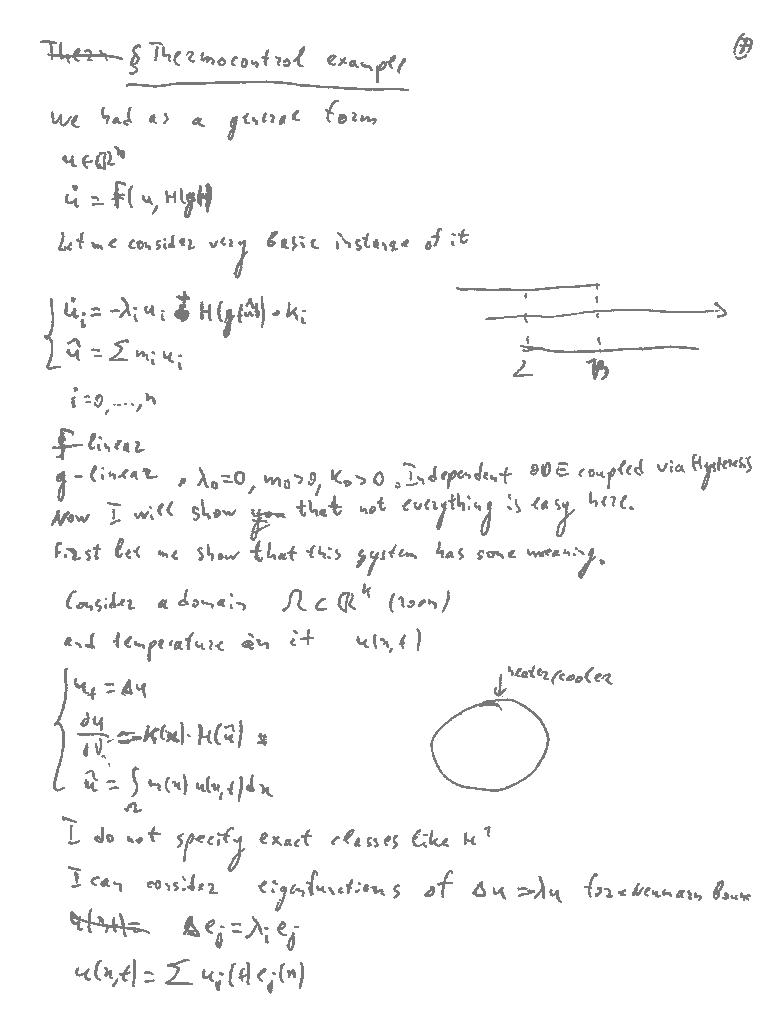 § Thermocontrol example
We had as a general form
u ∈ ℝⁿ
u̇ = F(u, H(g))
Let me consider very basic instance of it
u̇ᵢ = -λᵢuᵢ + H(g(û))·kᵢ
û = Σ mᵢuᵢ
i=0,...,n
F-linear
g-linear, λ₀=0, m₀>0, k₀>0. Independent ODE coupled via Hysteresis
Now I will show that not everything is easy here.
First let me show that this system has some meaning.
L B
Consider a domain Ω ⊂ ℝᵏ (room)
and temperature in it u(x,t)
u_t = Δu
∂u/∂ν = K(x)·H(û)
û = ∫_Ω m(x) u(x,t) dx
heater/cooler
I do not specify exact classes like H¹
I can consider eigenfunctions of Δu = λu for Neumann Boun
Δeⱼ = λⱼ eⱼ
u(x,t) = Σ uⱼ(t) eⱼ(x)